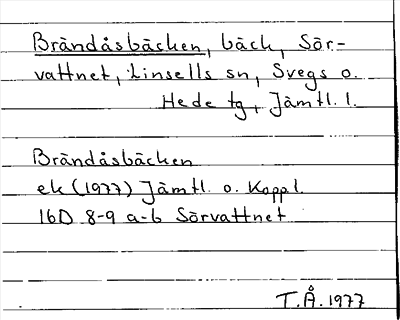 Brändåsbäcken, bäck, Sör-
vattnet, Linsells sn, Svegs o.
Hede tg, Jämtl. l.
Brändåsbäcken
ek (1977) Jämtl. o. Koppl.
16D 8-9 a-b Sörvattnet
T.Å. 1977